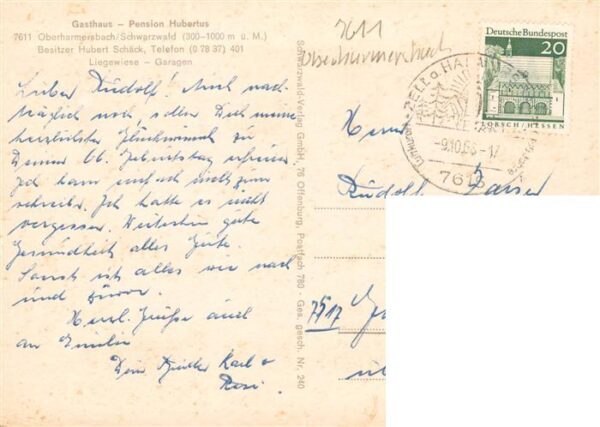 Gasthaus – Pension Hubertus
7611 Oberharmersbach/Schwarzwald (300–1000 m ü. M.)
Besitzer Hubert Schäck, Telefon (0 78 37) 401
Liegewiese – Garagen
Lieber Rudolf! Auch nach-
träglich noch, sollen Dich meine
herzlichsten Glückwünsche zu
Deinem 66. Geburtstag
Ich kam einfach nicht zum
schreiben. Ich hatte es nicht
vergessen. Weiterhin gute
Gesundheit alles Gute.
Sonst ist alles wie nach
und zuvor.
Herzl. Grüße auch
an Familie
Dein Bruder Karl u
Rosi.
Schwarzwald-Verlag GmbH, 76 Offenburg, Postfach 780 · Ges. gesch. Nr. 240
7611
Oberharmersbach
Deutsche Bundespost
20
LORSCH/HESSEN
ZELL a. HARM
-9.10.66-17
7615
Herrn
Rudolf